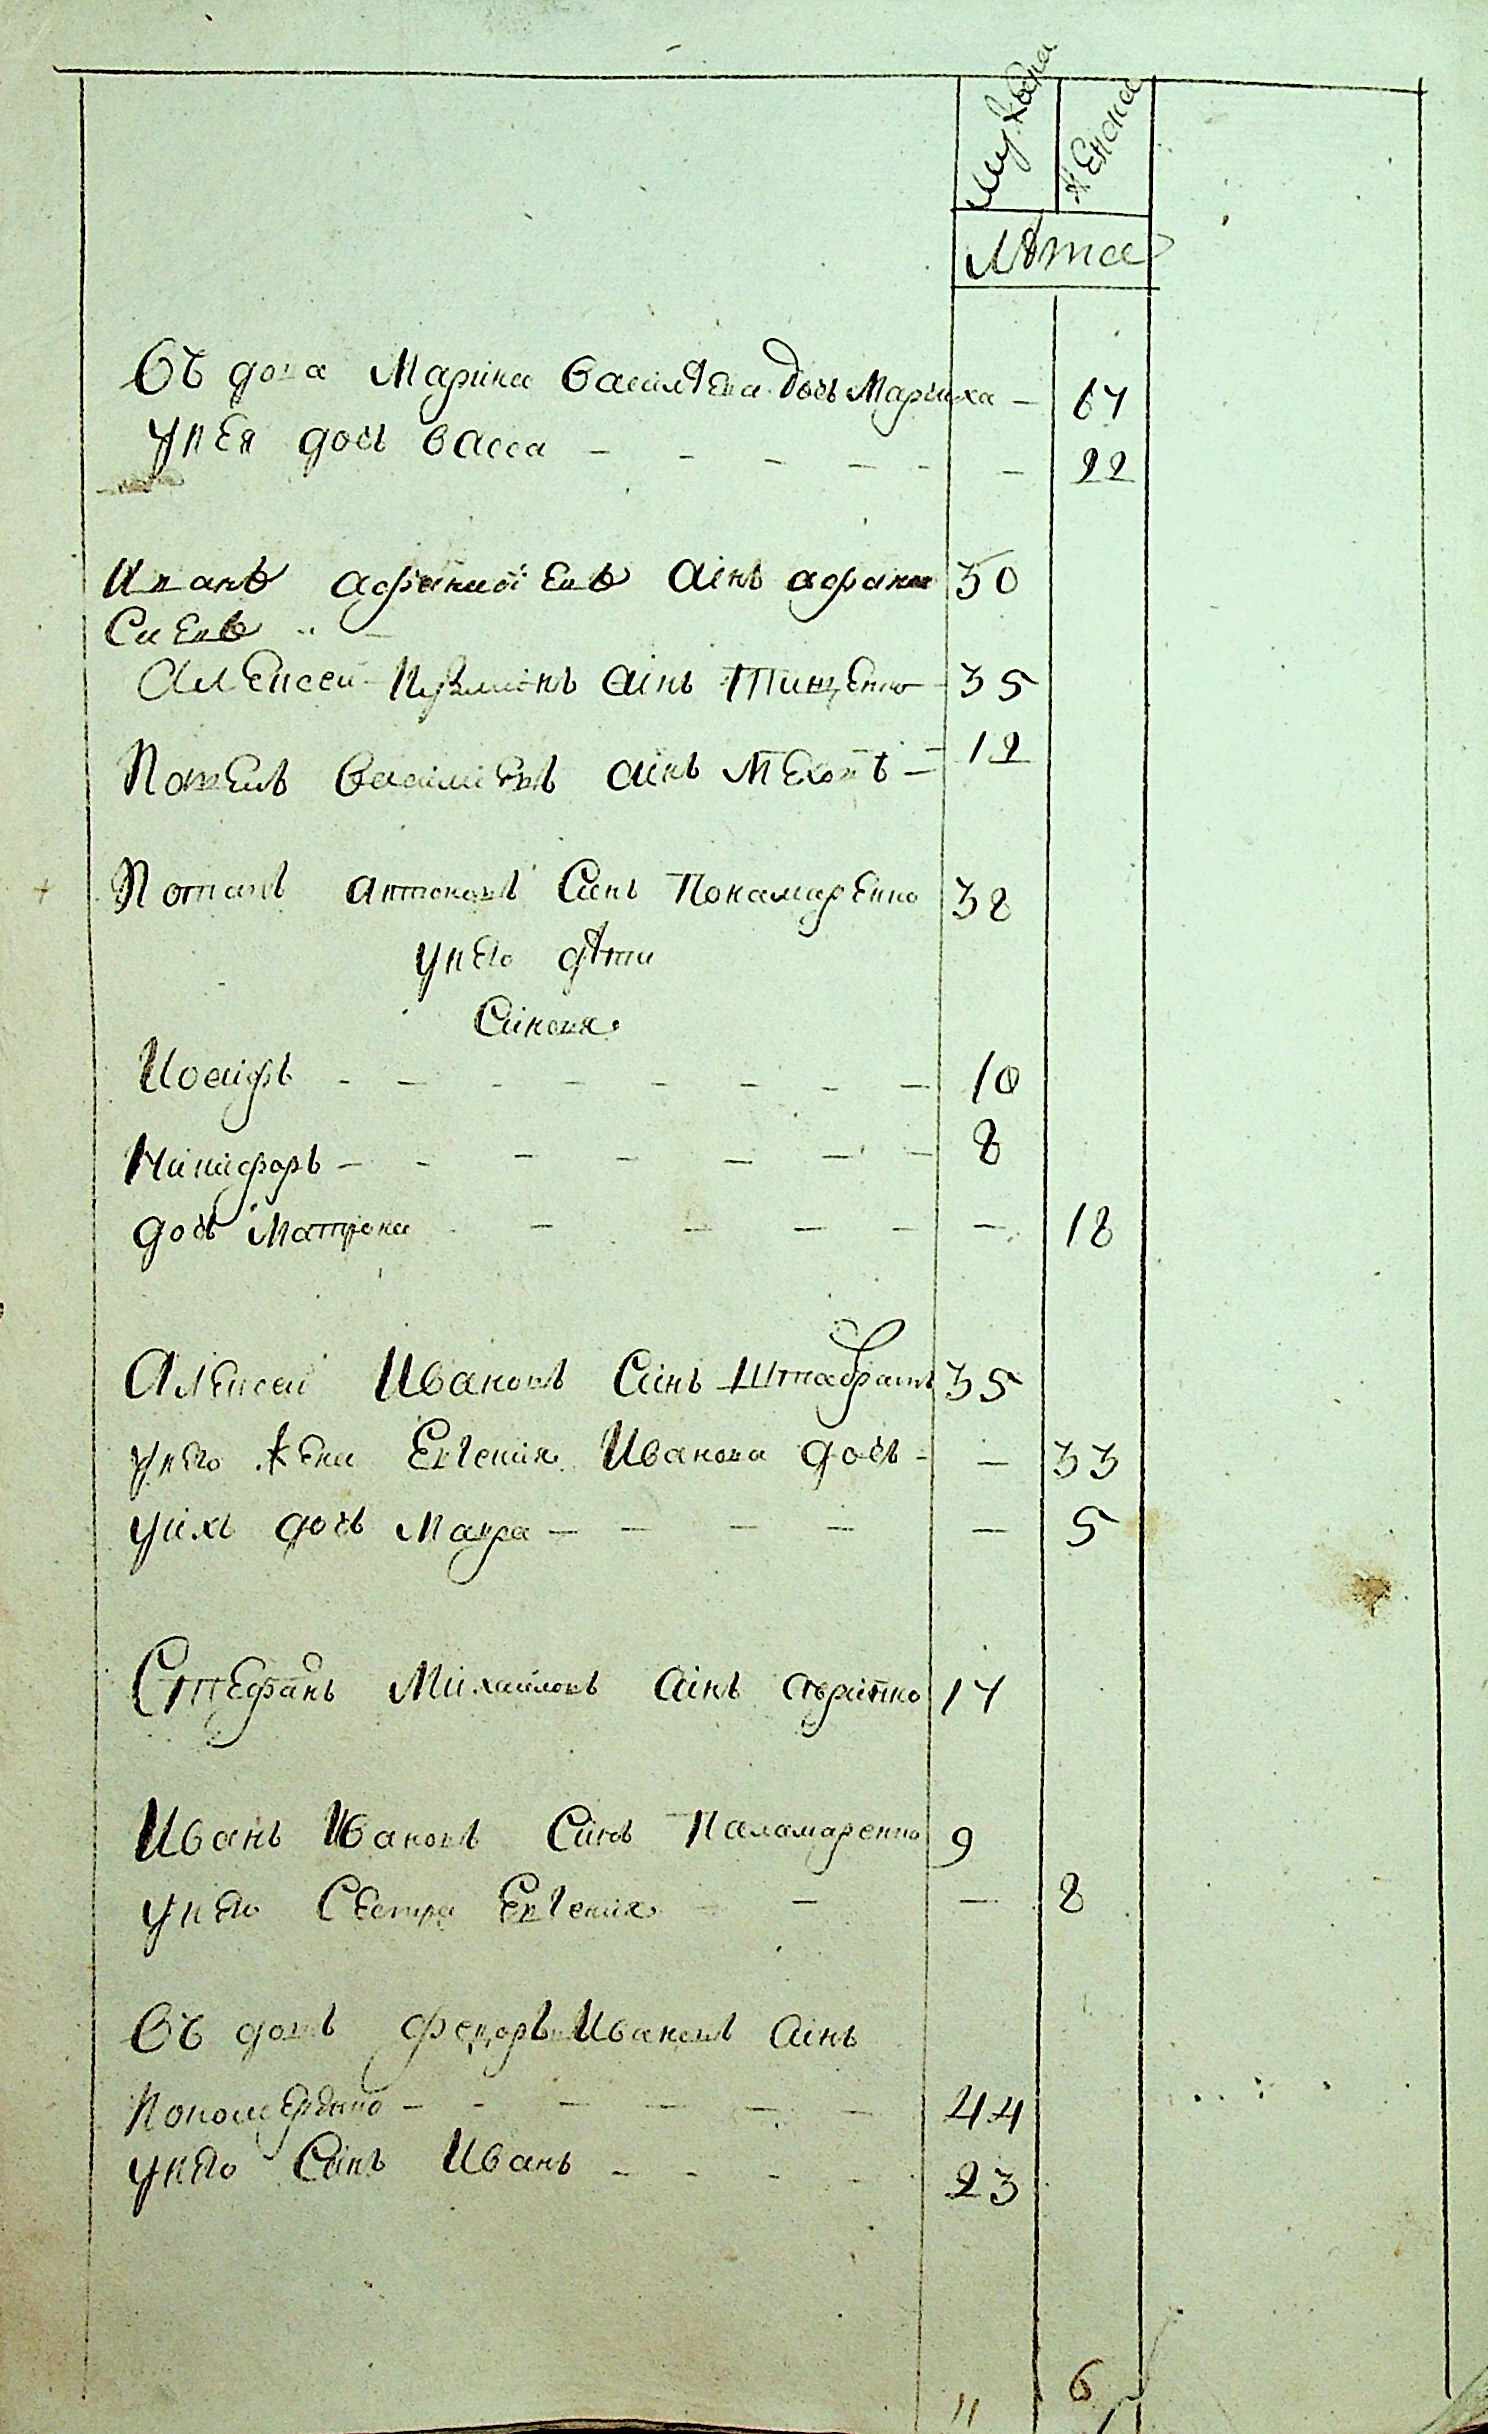 мужска женска
Лѣта
Въ дова Марина Василѣева дочь Мариха — 67
у нея дочь Васса — 22
Иванъ Афанасіевъ синъ Афана 30
сиевъ
Алексей Кузминъ синъ Тищенко 35
Павелъ Василіевъ синъ — 12
Потапъ Антоновъ Синъ Понамаренко 38
у него дѣти
Синовя
Иосифъ — 10
Никифоръ — 8
дочь Матрона — 18
Алексей Ивановъ Синъ 35
у него жена Евгения Иванова дочь — 33
у них дочь Мавра — 5
Стефанъ Михайловъ синъ 17
Иванъ Ивановъ Синъ Паламаренко 9
у него Сестра Евгения — 8
Въ довъ Федоръ Ивановъ синъ
44
у него Синъ Иванъ 23
11 6